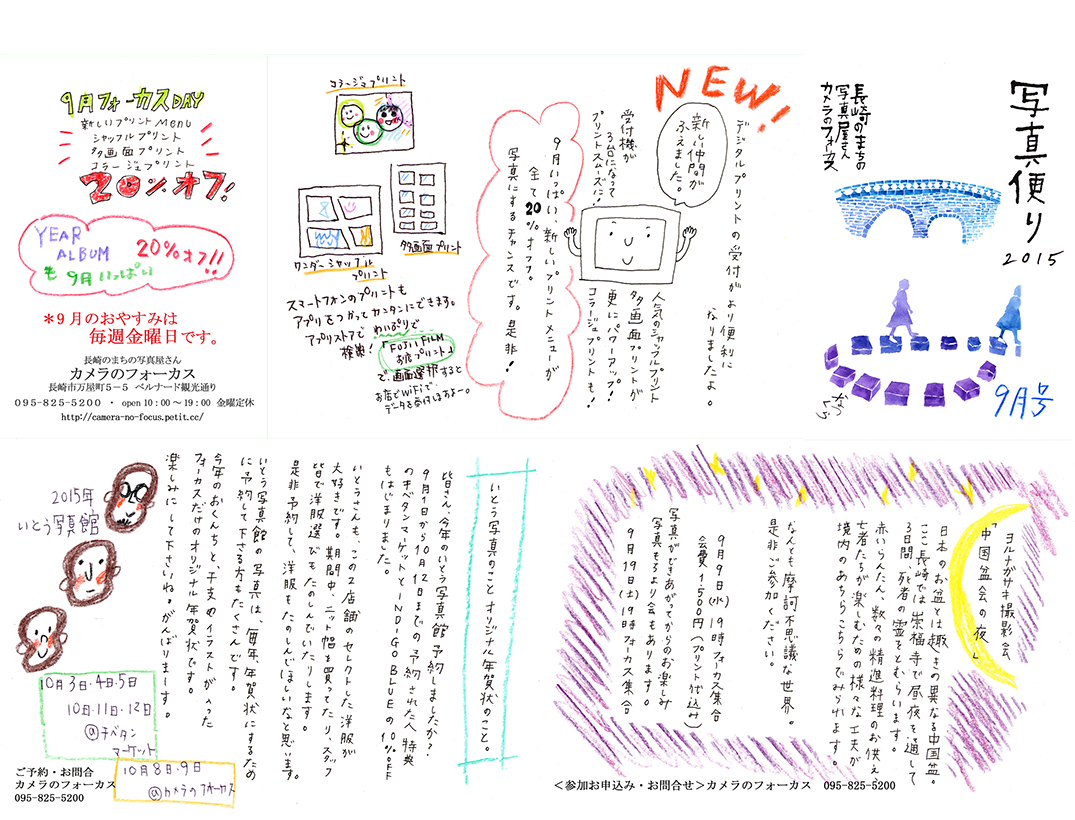 写真便り
2015
長崎のまちの
写真屋さん
カメラのフォーカス
9月号
NEW!
新しい仲間が
ふえました。
デジタルプリントの受付がより便利に
なりましたよ。
受付機が
3台になって
プリントスムーズに!
人気のシャッフルプリント
多画面プリントが
更にパワーアップ!
コラージュプリントも!
9月いっぱい、新しいプリントメニューが
全て20%オフ。
写真にするチャンスです。是非!
コラージュプリント
多画面プリント
ワンダーシャッフル
プリント
スマートフォンのプリントも
アプリをつかってカンタンにできます。
アプリストアで わいぷりで
検索!
「FUJIFILM
お店プリント」
で、画面選択すると
お店でWiFiで、
データを受付けますよー。
9月フォーカスDAY
新しいプリントMenu
シャッフルプリント
多画面プリント
コラージュプリント
20%オフ!
YEAR
ALBUM
20%オフ!!
も 9月いっぱい
*9月のおやすみは
毎週金曜日です。
長崎のまちの写真屋さん
カメラのフォーカス
長崎市万屋町5-5 ベルナード観光通り
095-825-5200 ・ open 10:00~19:00 金曜定休
http://camera-no-focus.petit.cc/
ヨルナガサキ撮影会
「中国盆会の夜」
日本のお盆とは趣きの異なる中国盆。
ここ長崎では崇福寺で昼夜を通して
3日間、死者の霊をとむらいます。
赤いらんたん、数々の精進料理のお供え
亡者たちが楽しむための様々な工夫が
境内のあちらこちらでみられます。
なんとも摩訶不思議な世界。
是非ご参加ください。
9月9日(水)19時フォーカス集合
会費1,500円(プリント代込み)
写真ができあがってからのお楽しみ
写真もちより会もあります。
9月19日(土)19時フォーカス集合
<参加お申込み・お問合せ>カメラのフォーカス 095-825-5200
いとう写真のこと オリジナル年賀状のこと。
皆さん、今年のいとう写真館 予約しましたか?
9月1日から10月12日までの予約された人 特典
のチベタンマーケットとINDIGO BLUEの10%OFF
もはじまりました。
いとうさんも、この2店舗のセレクトした洋服が
大好きです。期間中、ニット帽を買ってたり、スタッフ
皆で洋服選びもたのしんでいたりします。
是非予約して、洋服もたのしんでほしいなと思います。
いとう写真館の写真は、毎年、年賀状にするため
に予約して下さる方もたくさんです。
今年のおくんちと、干支のイラストが入った
フォーカスだけのオリジナル年賀状です。
楽しみにして下さいね。がんばりまーす。
2015年
いとう写真館
10月3日・4日・5日
10日・11日・12日
@チベタン
マーケット
10月8日・9日
@カメラのフォーカス
ご予約・お問合
カメラのフォーカス
095-825-5200